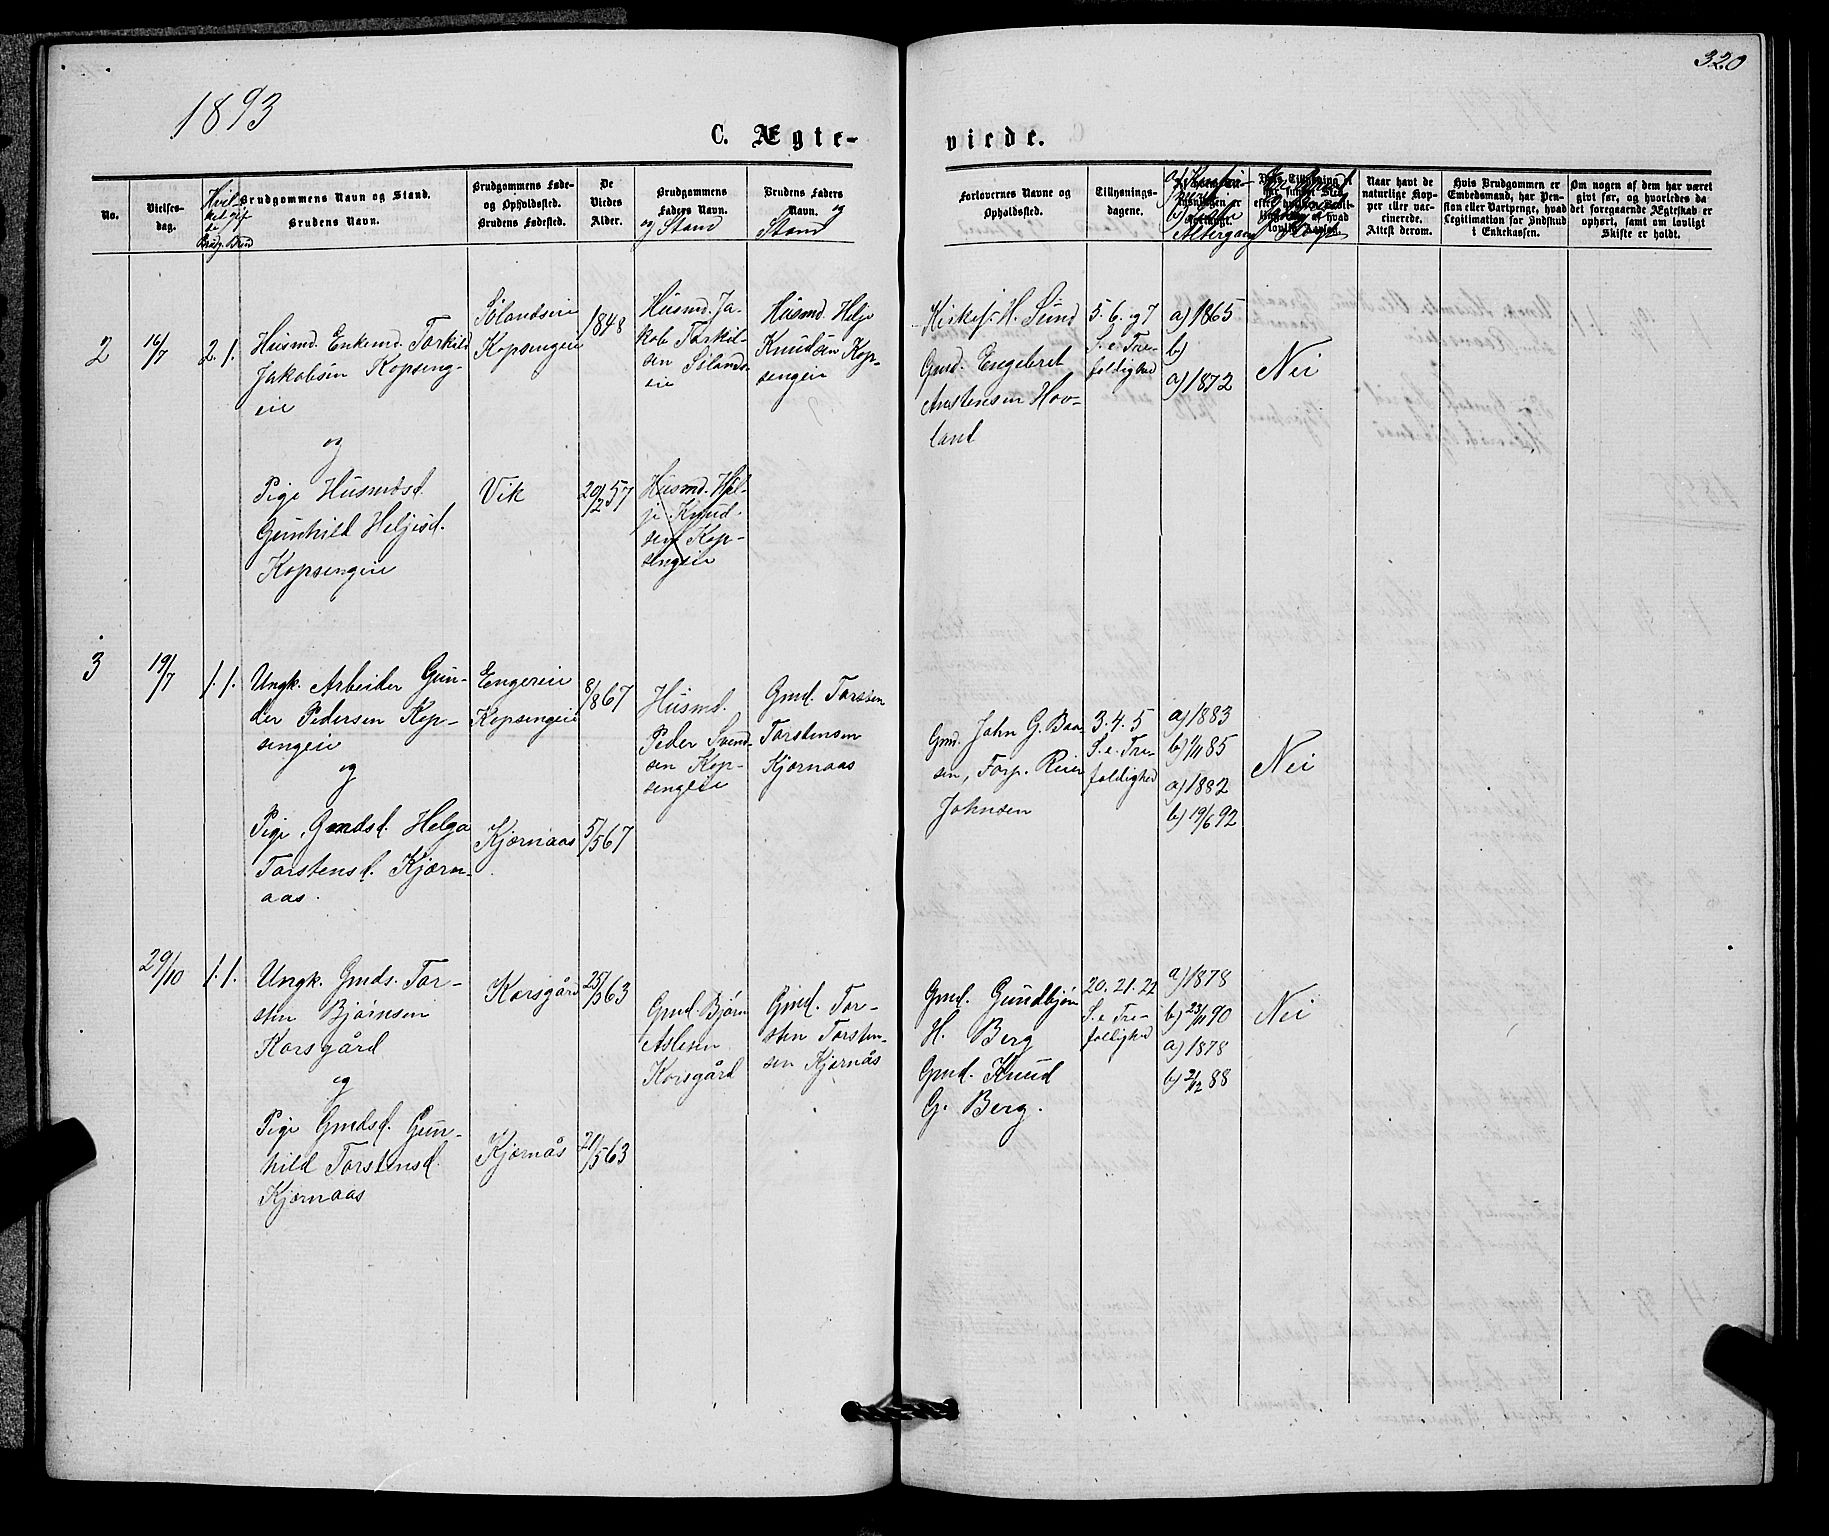 320
1893
C. Ægte-
viede.
No.
Vielses-
dag.
Brudgommens Navn og Stand.
Brudens Navn.
Brudgommens Føde-
og Opholdssted.
Brudens Fødested.
De
Viedes
Alder.
Brudgommens
Faders Navn.
og Stand
Brudens Faders
Navn. og
Stand
Forlovernes Navne og
Opholdssted.
Tillysnings-
dagene.
Naar havt de
naturlige Kop-
per eller vac-
cinerede.
Attest derom.
Hvis Brudgommen er
Embedsmand, har Pen-
sion eller Vartpenge, hvad
Legitimation for Indskud
i Enkekassen.
Om nogen af dem har været
givt før, og hvorledes da
det foregaaende Ægteskab er
ophørt, samt om lovligt
Skifte er holdt.
2
16/7
2. 1.
Husmd. Enkemd. Torkild
Jakobsen Kopseng-
eie
og
Pige Husmdsd.
Gunhild Heljesd.
Kopsengeie
Sølandseie
Kopsengeie
Vik
1848
20/2 57
Husmd. Ja-
kob Torkil-
sen Sølands-
eie
Husmd. Hel-
je Knud-
sen Kop-
sengeie
Husmd. Helje
Knudsen Kop-
sengeie
Kirkes. H. Lund
Gmd. Engebret
Anstensen Hov-
land
5. 6. og 7
S. e. Tre-
foldighed
a) 1865
b)
a) 1872
Nei
3
19/7
1. 1.
Ungk. Arbeider Gun-
der Pedersen Kop-
sengeie
og
Pige Gmdsd. Helga
Torstensd. Kjærn-
aas.
Engereie
Kopsengeie
Kjærnaas
8/8 67
5/5 67
Husmd.
Peder Svend-
sen Kop-
sengeie
Gmd. Torsten
Torstensen
Kjørnaas
Gmd. John G. Baa-
sen, Forp. Reier
Johnsen
3. 4. 5
S. e. Tre-
foldighed
a) 1883
b) 1/11 85
a) 1882
b) 19/6 92
Nei
29/10
1. 1.
Ungk. Gmds. Tor-
sten Bjørnsen
Korsgård
og
Pige Gmdsd. Gun-
hild Torstensd.
Kjærnaas
Korsgård
Kjærnås
25/3 63
21/5 63
Gmd. Bjørn
Aslesen
Korsgård
Gmd. Tor-
sten Torsten-
sen Kjærnås
Gmd. Gundbjørn
H. Berg
Gmd. Knud
G. Berg.
20. 21. 22
S. e. Tre-
foldighed
a) 1878
b) 23/11 90
a) 1878
b) 2/12 88
Nei